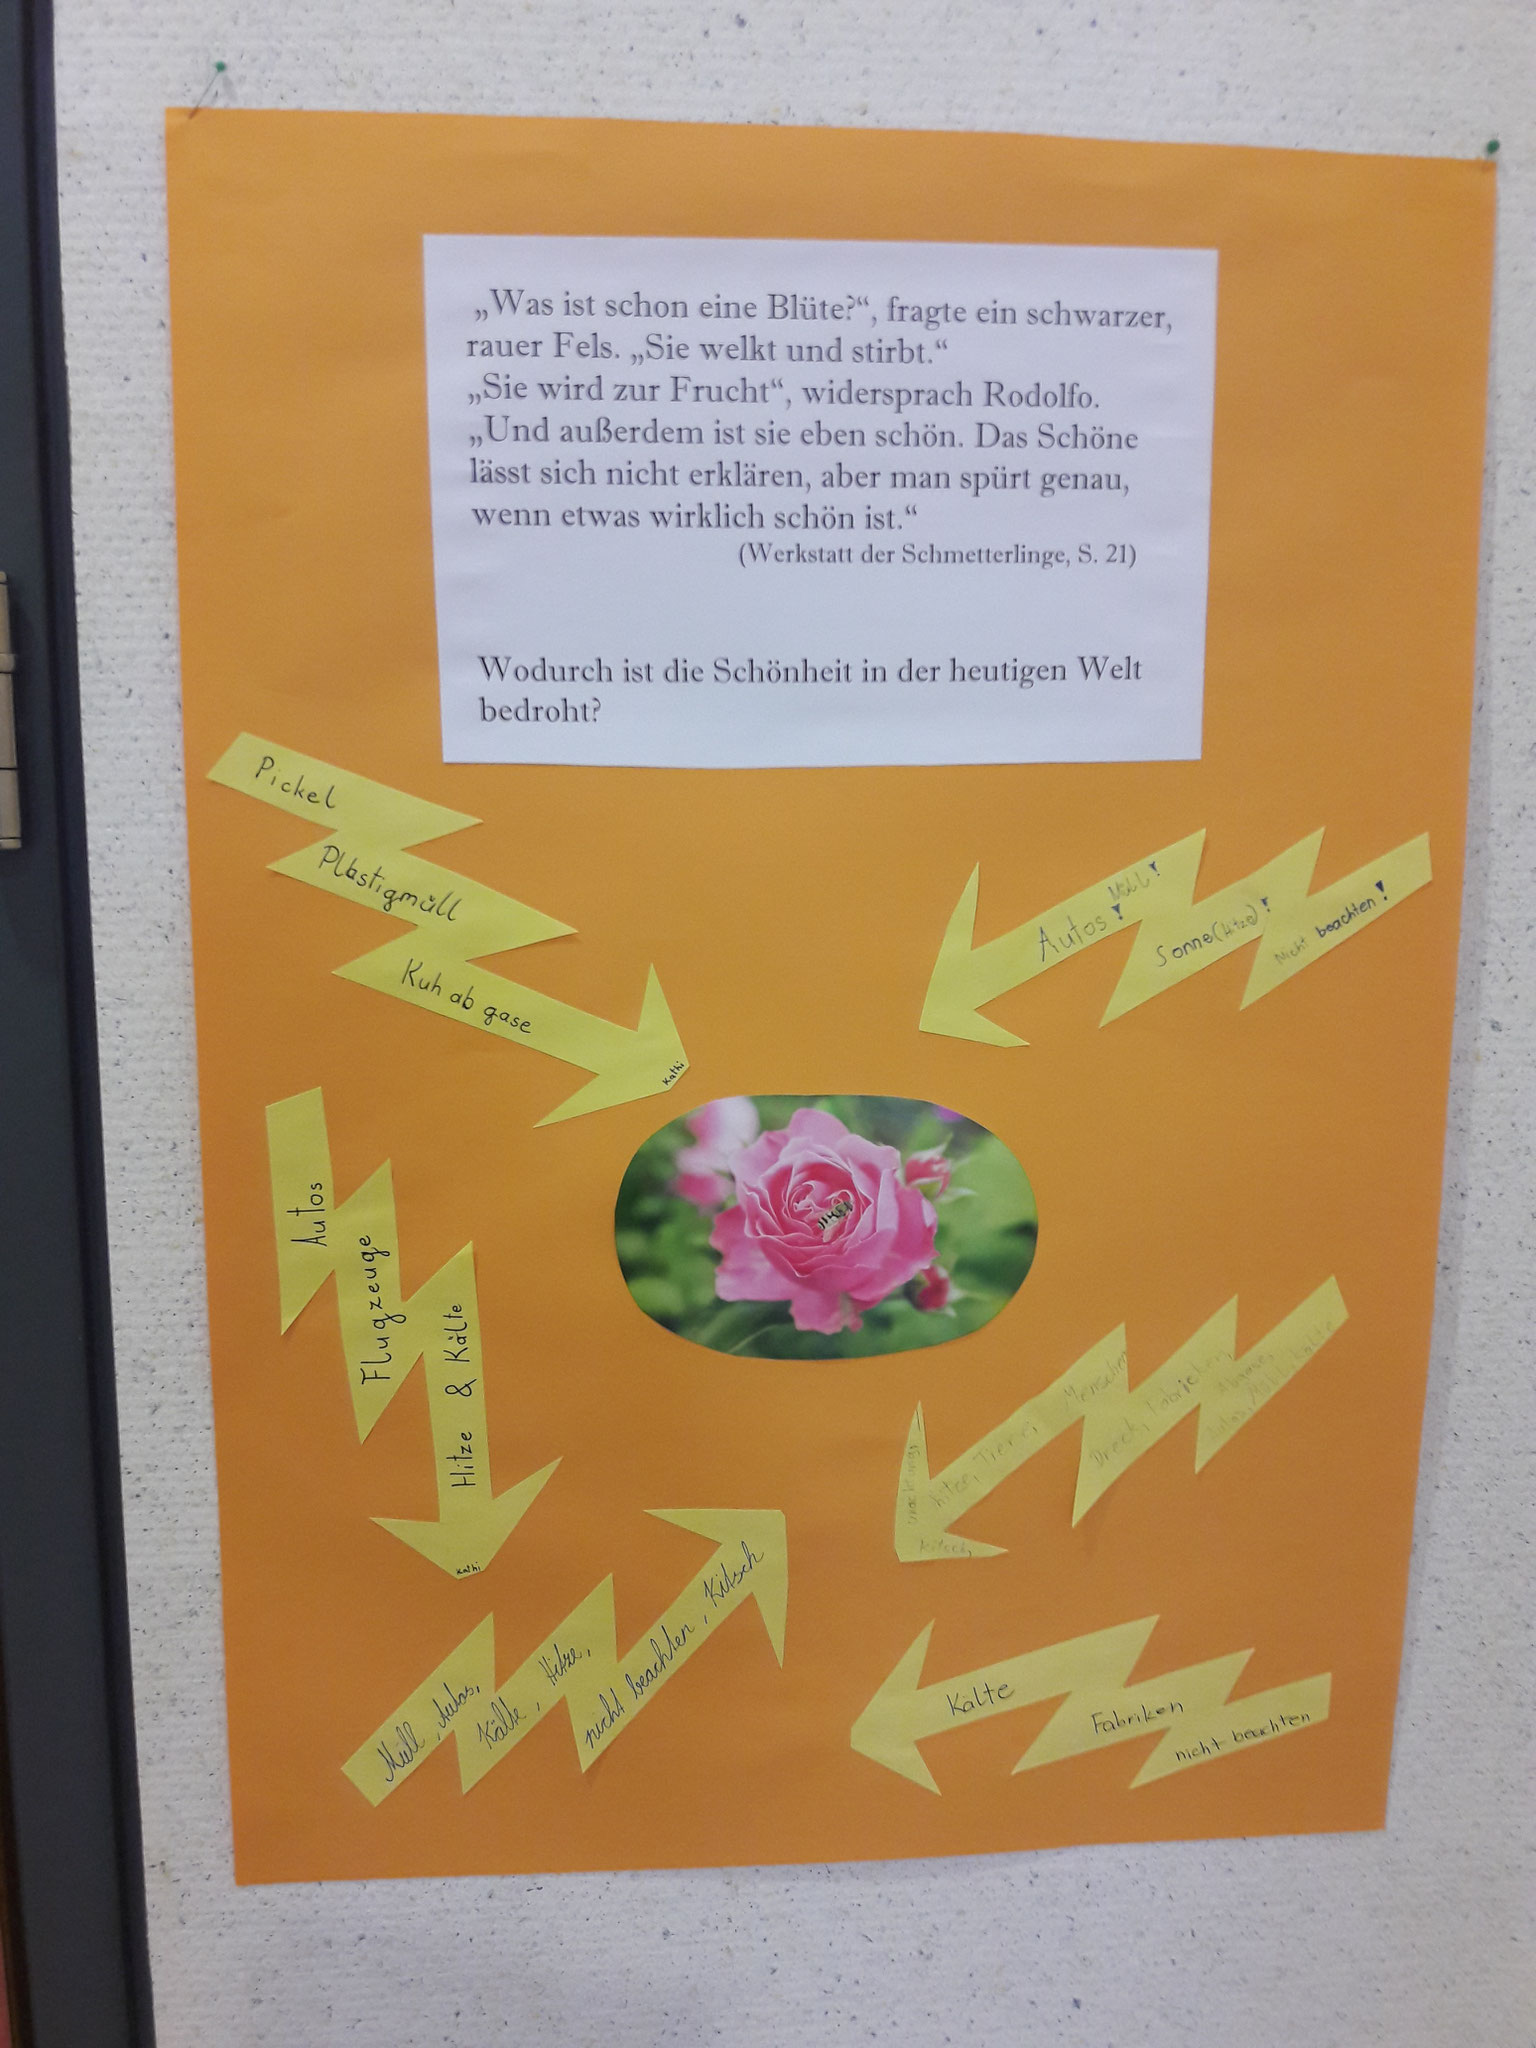 „Was ist schon eine Blüte?“, fragte ein schwarzer,
rauer Fels. „Sie welkt und stirbt.“
„Sie wird zur Frucht“, widersprach Rodolfo.
„Und außerdem ist sie eben schön. Das Schöne
lässt sich nicht erklären, aber man spürt genau,
wenn etwas wirklich schön ist.“
(Werkstatt der Schmetterlinge, S. 21)
Wodurch ist die Schönheit in der heutigen Welt
bedroht?
Pickel
Plastigmüll
Kuh ab gase
Kathi
Müll!
Autos!
Sonne(Hitze)!
Nicht beachten!
Autos
Flugzeuge
Hitze & Kälte
Kathi
Menschen
Hitze, Tiere,
Dreck, Fabrieken,
Abgase,
Autos, Müll, Kälte
Kitsch,
Müll, Autos,
Kälte, Hitze,
nicht beachten, Kitsch
Kälte
Fabriken
nicht beachten